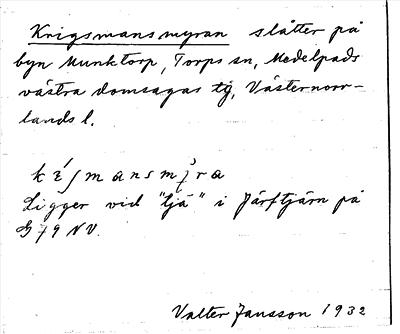 Krigsmansmyran slåtter på
byn Munktorp, Torps sn, Medelpads
västra domsagas tg, Västernorr-
lands l.
Ligger vid "tjä" i Järftjärn på
G 79 NV.
Valter Jansson 1932